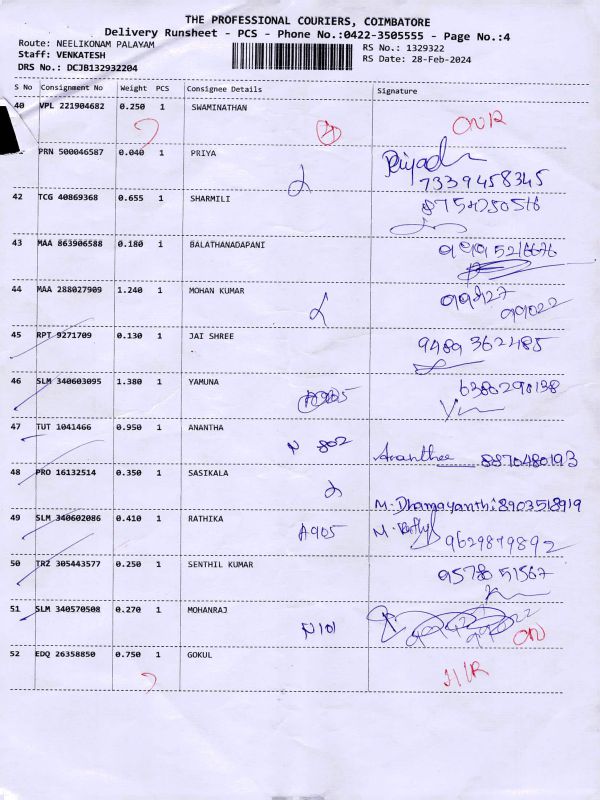 THE PROFESSIONAL COURIERS, COIMBATORE
Delivery Runsheet - PCS - Phone No.:0422-3505555 - Page No.:4
Route: NEELIKONAM PALAYAM
RS No.: 1329322
Staff: VENKATESH
RS Date: 28-Feb-2024
DRS No.: DCJB132932204
S No Consignment No Weight PCS Consignee Details Signature
40 VPL 221904682 0.250 1 SWAMINATHAN
PRN 500046587 0.040 1 PRIYA
7339458345
42 TCG 40869368 0.655 1 SHARMILI
43 MAA 863906588 0.180 1 BALATHANADAPANI
44 MAA 288027909 1.240 1 MOHAN KUMAR
45 RPT 9271709 0.130 1 JAI SHREE 9489 362485
46 SLM 340603095 1.380 1 YAMUNA 6380290138
47 TUT 1041466 0.950 1 ANANTHA
N 802 Ananthee 8870480193
48 PRO 16132514 0.350 1 SASIKALA
M. Dhamayanthi 8903518919
49 SLM 340602086 0.410 1 RATHIKA A905
9629879892
50 TRZ 305443577 0.250 1 SENTHIL KUMAR 95780 51567
51 SLM 340570508 0.270 1 MOHANRAJ
N101
52 EDQ 26358850 0.750 1 GOKUL